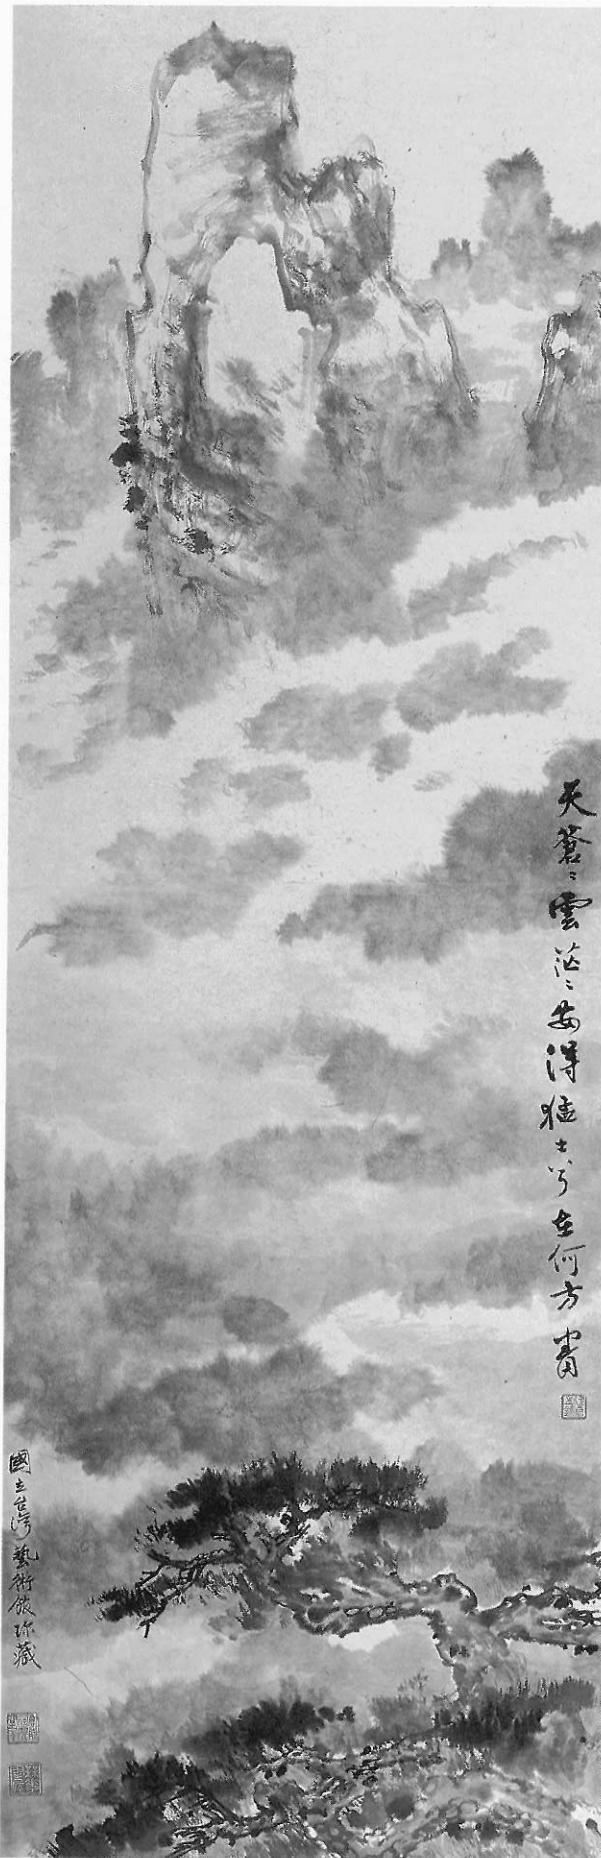 天蒼〻雲茫〻安得猛士兮在何方
國立台灣藝術館珍藏